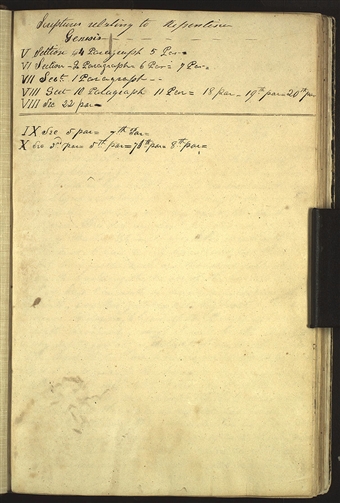 Scriptures relating to Repentance
Genesis - - - - -
V Section 44 Paragraph 5 Par=
VI Section - 2 Paragraph - 6 Par= 9 Par=
VII Sect 1 Paragraph - -
VIII Sect 10 Paragraph 11 Par= 18 par - 19th par = 20th par
VIII Sec 22 par=
IX Sec 5 par= 7th Par=
X Sec 3d par= 5th par= 7th par= 8th par=